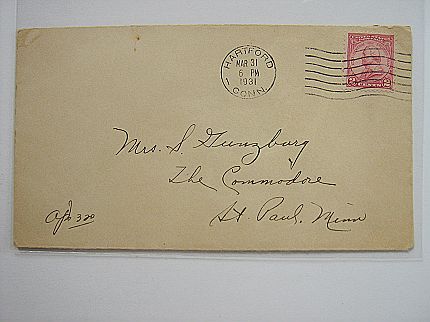 HARTFORD
MAR 31
6 PM
1931
CONN.
1
2 2
Mrs. S Gunzburg
The Commodore
St. Paul, Minn
Apt 320